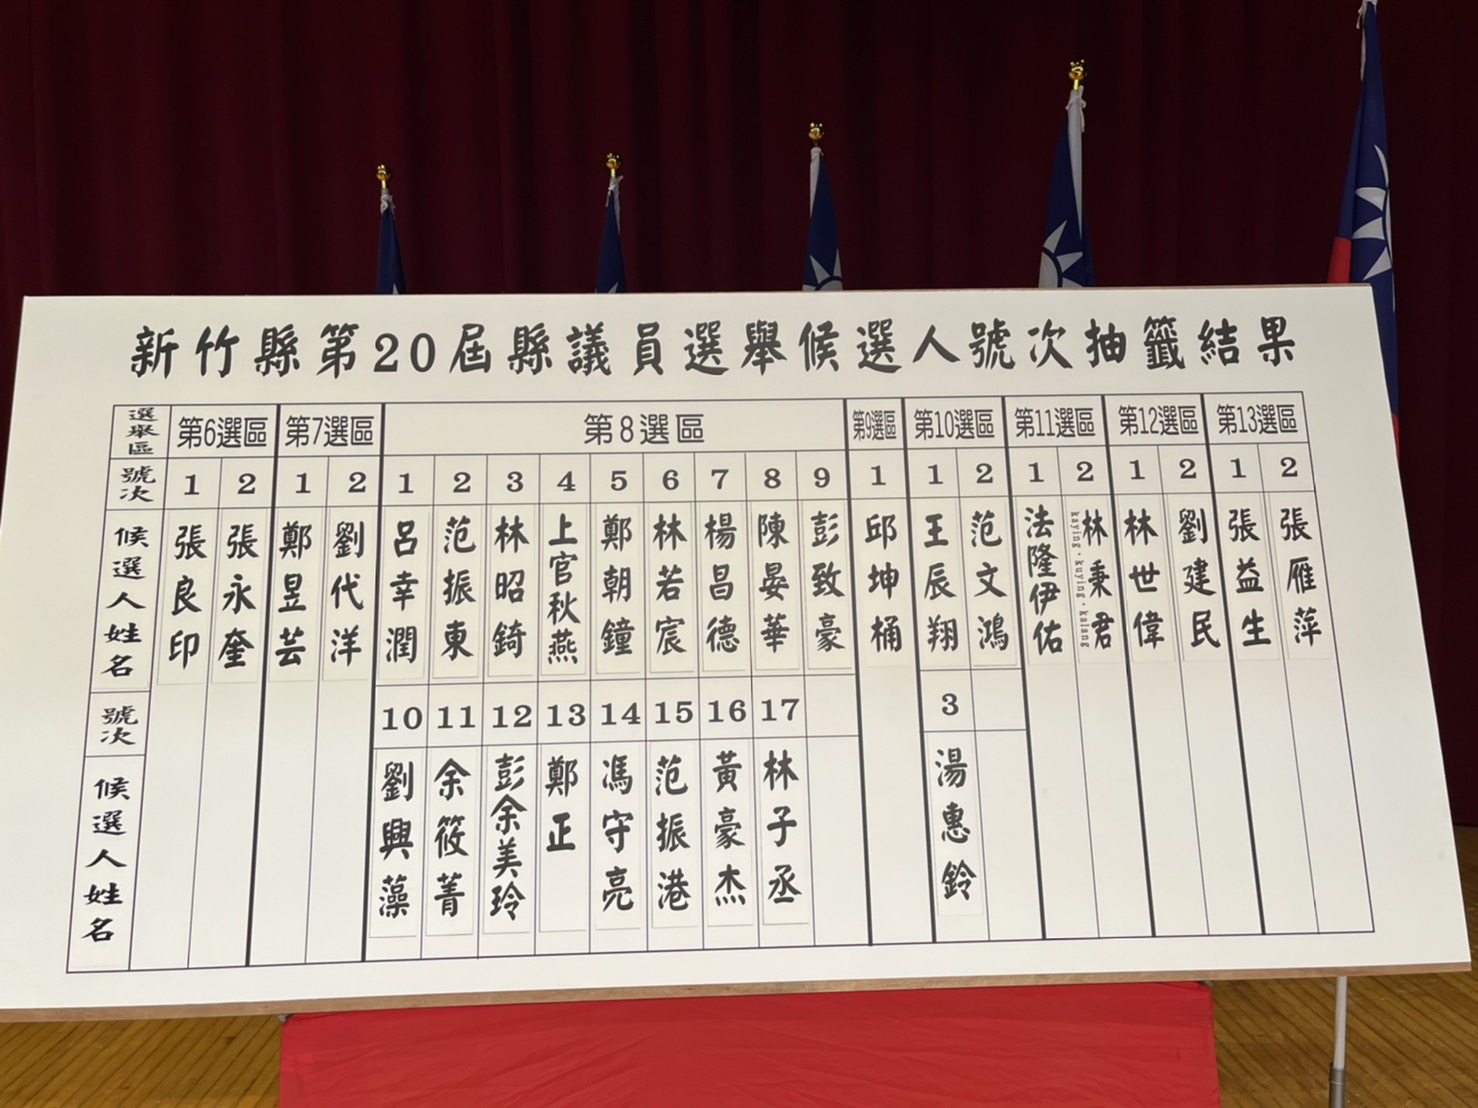 新竹縣第20屆縣議員選舉候選人號次抽籤結果
選舉區 第6選區 第7選區 第8選區 第9選區 第10選區 第11選區 第12選區 第13選區
號次 1 2 1 2 1 2 3 4 5 6 7 8 9 1 1 2 1 2 1 2 1 2
候選人姓名 張良印 張永奎 鄭昱芸 劉代洋 呂幸潤 范振東 林昭錡 上官秋燕 鄭朝鐘 林若宸 楊昌德 陳晏華 彭致豪 邱坤桶 王辰翔 范文鴻 法隆伊佑 林秉君 kaying·kuying·kalang 林世偉 劉建民 張益生 張雁萍
號次 10 11 12 13 14 15 16 17 3
候選人姓名 劉興藻 余筱菁 彭余美玲 鄭正 馮守亮 范振港 黃豪杰 林子丞 湯惠鈴